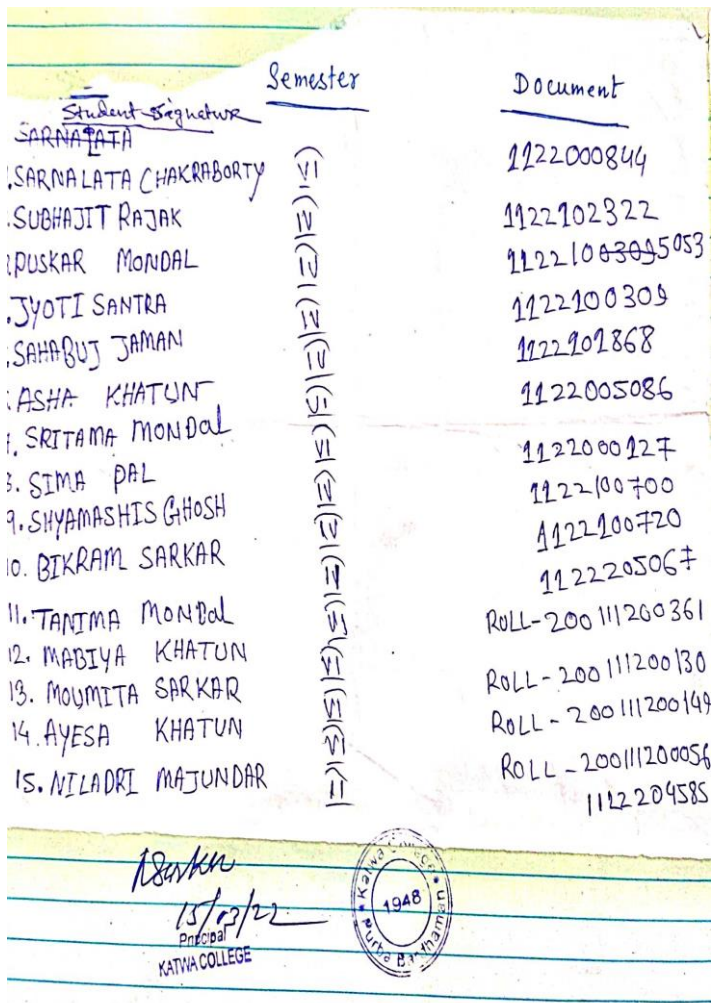 Student Signature Semester Document
SARNALATA
.SARNALATA CHAKRABORTY (VI) 1122000844
.SUBHAJIT RAJAK (IV) 1122102322
PUSKAR MONDAL (IV) 11221003095053
.JYOTI SANTRA (IV) 1122100309
.SAHABUJ JAMAN (IV) 1122101868
ASHA KHATUN (VI) 1122005086
. SRITAMA MONDal (VI) 1122000127
8. SIMA PAL (IV) 1122100700
9. SHYAMASHIS GHOSH (IV) 1122100720
10. BIKRAM SARKAR 1122205067
11. TANIMA MONDal (VI) ROLL-200111200361
12. MABIYA KHATUN (VI) ROLL-200111200130
13. MOUMITA SARKAR (VI) ROLL-200111200149
14. AYESA KHATUN (VI) ROLL-200111200056
15. NILADRI MAJUNDAR (II) 1122204585
15/03/22
Principal
KATWA COLLEGE
Katwa College
1948
Purba Bardhaman